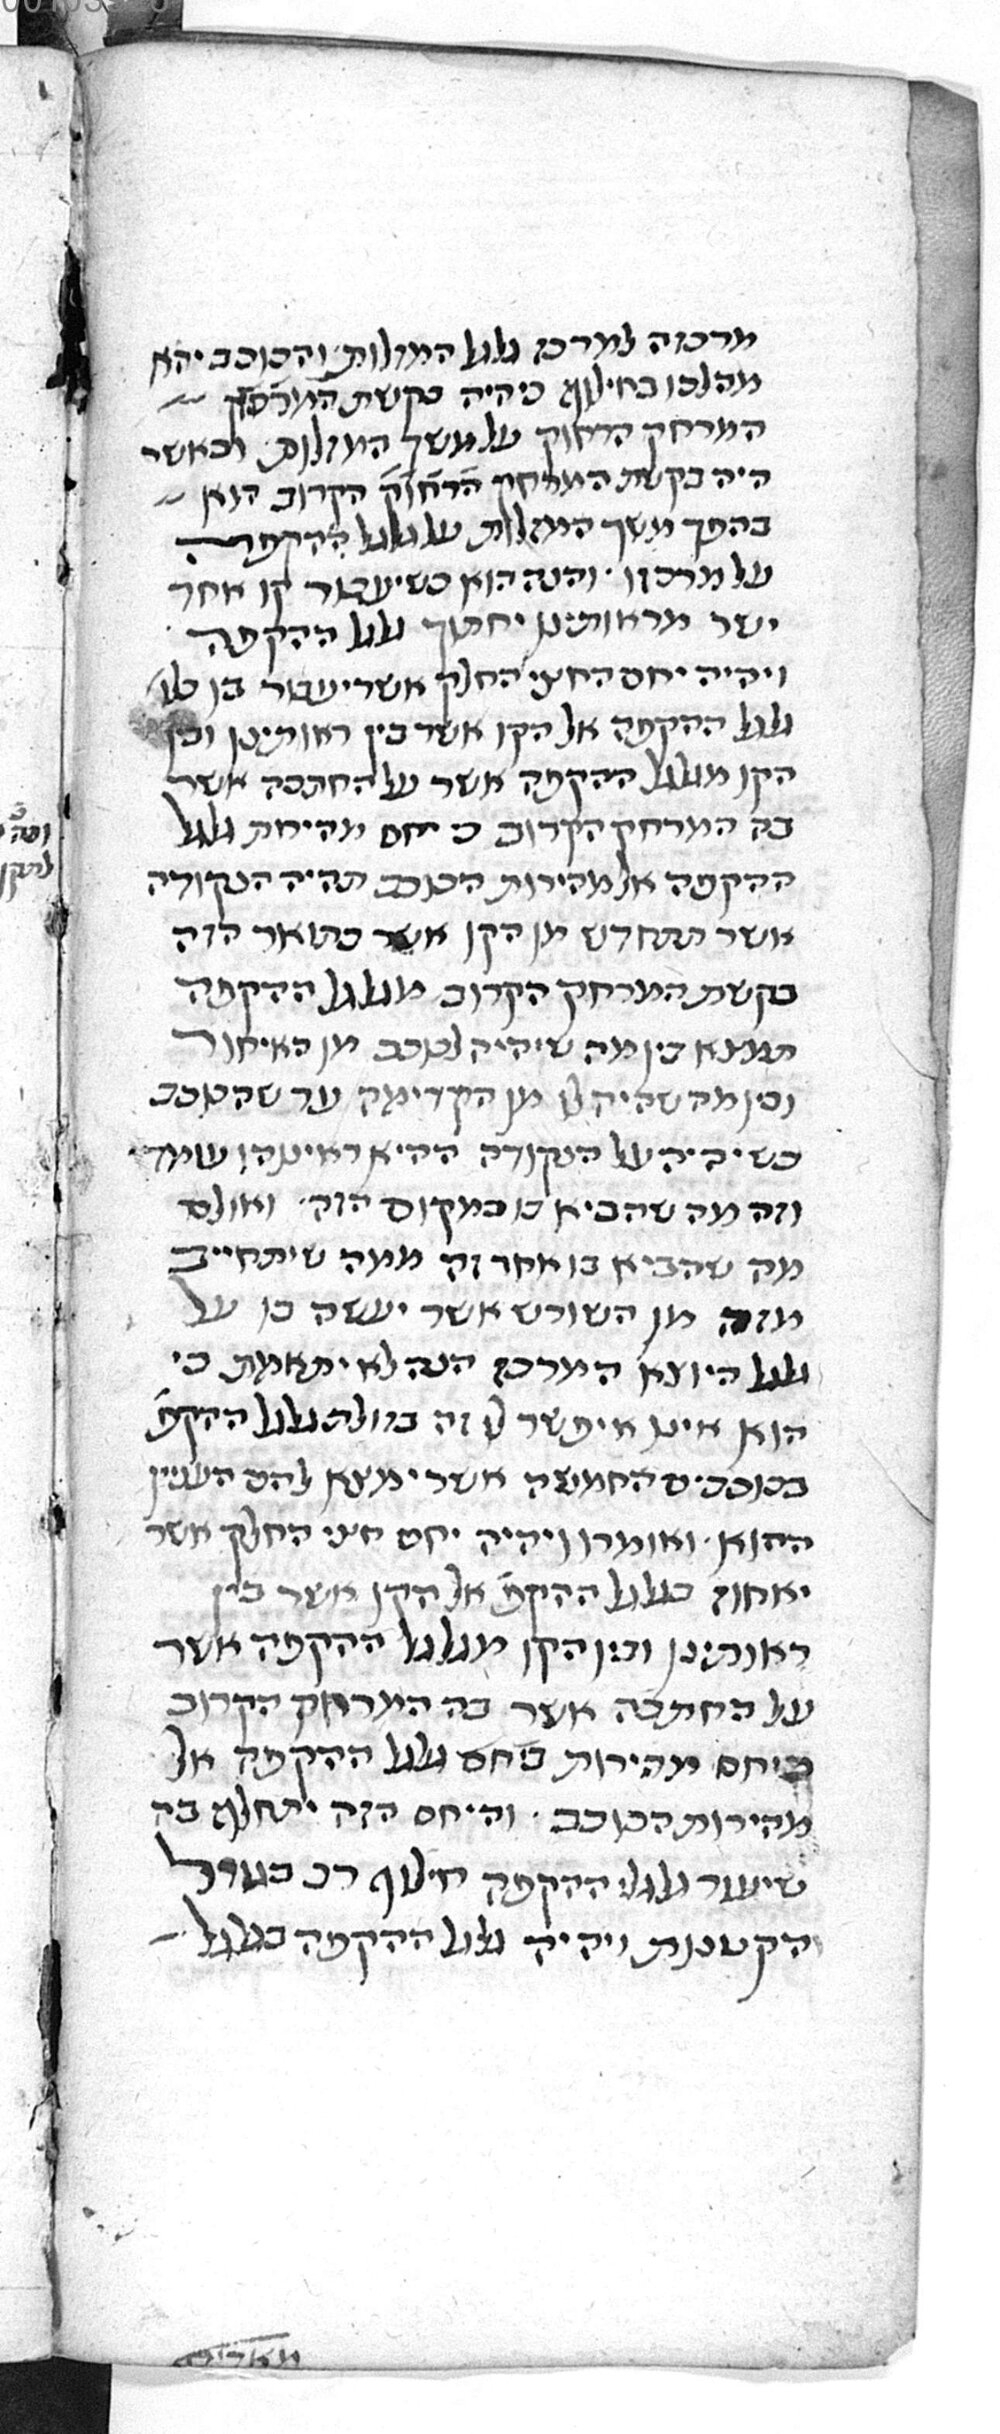 מרכזה למרכז גלגל המזלות והכוכב יהא
מהלכו בחילוף כי היה בקשת המרחק
המרחק הרחוק על משך המזלות וכאשר
היה בקשת המרחק הרחוק הקרוב הוא
בהפך משך המזלות על גלגל ההקפה
על מרכזו והנה הוא כשיעבור קו אחד
ישר מראותינו יחתוך גלגל ההקפה
ויהיה יחס החצי החלק אשר יעבור בו
גלגל ההקפה אל הקו אשר בין ראותינו ובין
הקו מגלגל ההקפה אשר על החתכה אשר
בה המרחק הקרוב כיחס מהירות גלגל
ההקפה אל מהירות הכוכב תהיה הנקודה
אשר תתחדש מן הקו אשר בתואר הזה
בקשת המרחק הקרוב מגלגל ההקפה
תמצא בין מה שיהיה לכוכב מן האיחור
ובין מה שהיה לו מן הקדימה עד שהכוכב
כשיהיה על הנקודה ההיא ראינוהו עומד
וזה מה שהביא בו במקום הזה ואולם
מה שהביא בו אחר זה ממה שיתחייב
מזה מן השורש אשר יעשה בו על
גלגל היוצא המרכז הנה לא יתאמת כי
הוא אינו איפשר לו זה בזולת גלגל ההקפ'
בכוכבים החמשה אשר ימצא להם העניין
ההוא ואומרו ויהיה יחס חצי החלק אשר
יאחוז בגלגל ההקפ' אל הקו אשר בין
ראותינו ובין הקו מגלגל ההקפה אשר
על החתכה אשר בה המרחק הקרוב
כיחס מהירות כיחס גלגל ההקפה אל
מהירות הכוכב והיחס הזה יתחלף בה
שיעור גלגלי ההקפה חילוף רב בגודל
והקטנות ויהיה גלגל ההקפה בגלגל